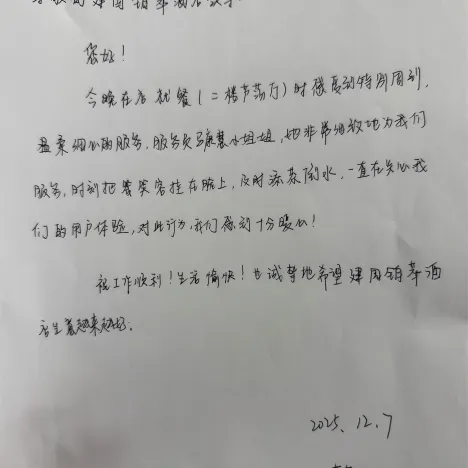 您好!
今晚在店就餐(二楼芦荡厅)时感受到特别周到,
温柔细心的服务,服务员 康慧小姐姐,她非常细致地为我们
服务,时刻把 笑容挂在脸上,及时添茶倒水,一直在关心我
们的用户体验,对此行为,我们感到十分暖心!
祝工作顺利!生活愉快!也诚挚地希望建国铂萃酒
店生意越来越好。
2025.12.7